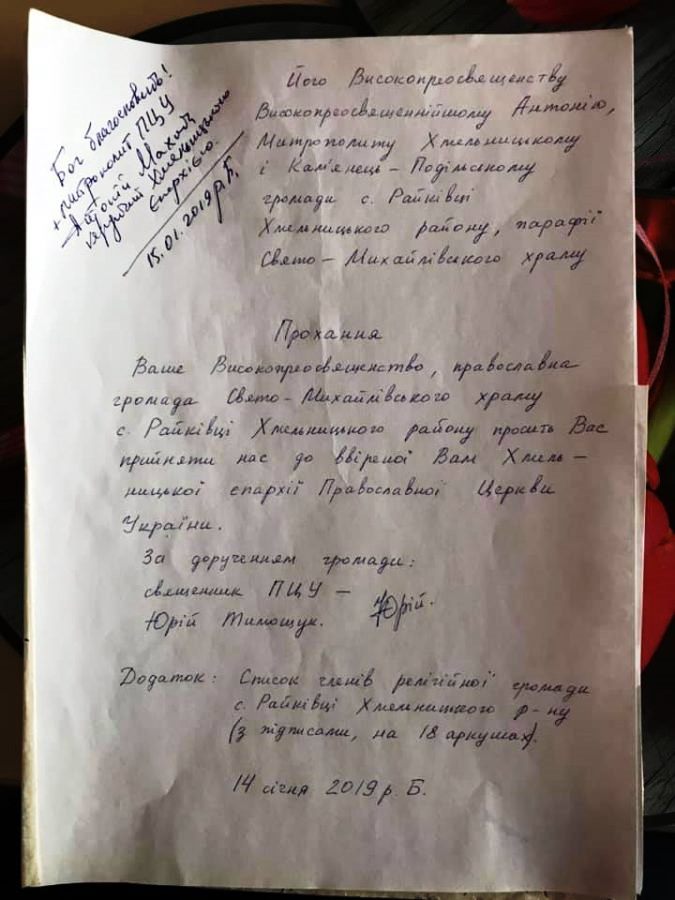 Бог благословить!
+ митрополит ПЦУ
Антоній Махота
керуючий Хмельницькою
Єпархією.
15.01.2019 р.Б.
Його Високопреосвященству
Високопреосвященнійшому Антонію,
Митрополиту Хмельницькому
і Кам'янець - Подільському
громади с. Райківці
Хмельницького району, парафії
Свято - Михайлівського храму
Прохання
Ваше Високопреосвященство, православна
громада Свято - Михайлівського храму
с. Райківці Хмельницького району просить Вас
прийняти нас до ввіреної Вам Хмель -
ницької єпархії Православної Церкви
України.
За дорученням громади:
священник ПЦУ -
Юрій Тимощук. Юрій.
Додаток: Список членів релігійної громади
с. Райківці Хмельницкого р-ну
(з підписами, на 18 аркушах).
14 січня 2019 р. Б.